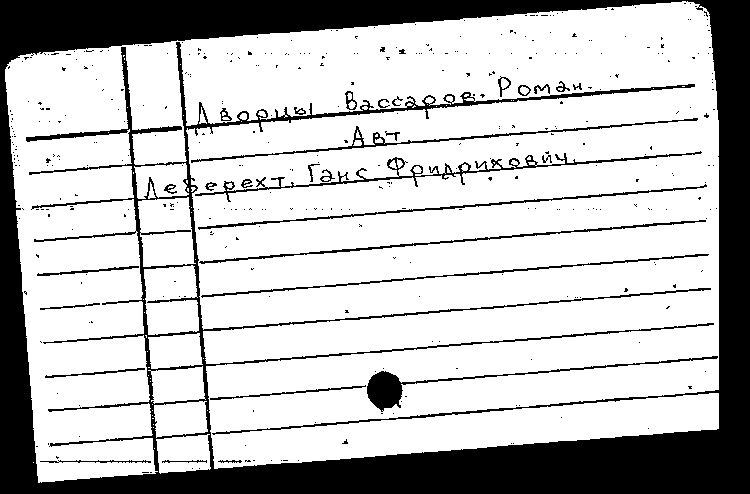 Дворцы Вассаров. Роман.
Авт.
Леберехт, Ганс Фридрихович.